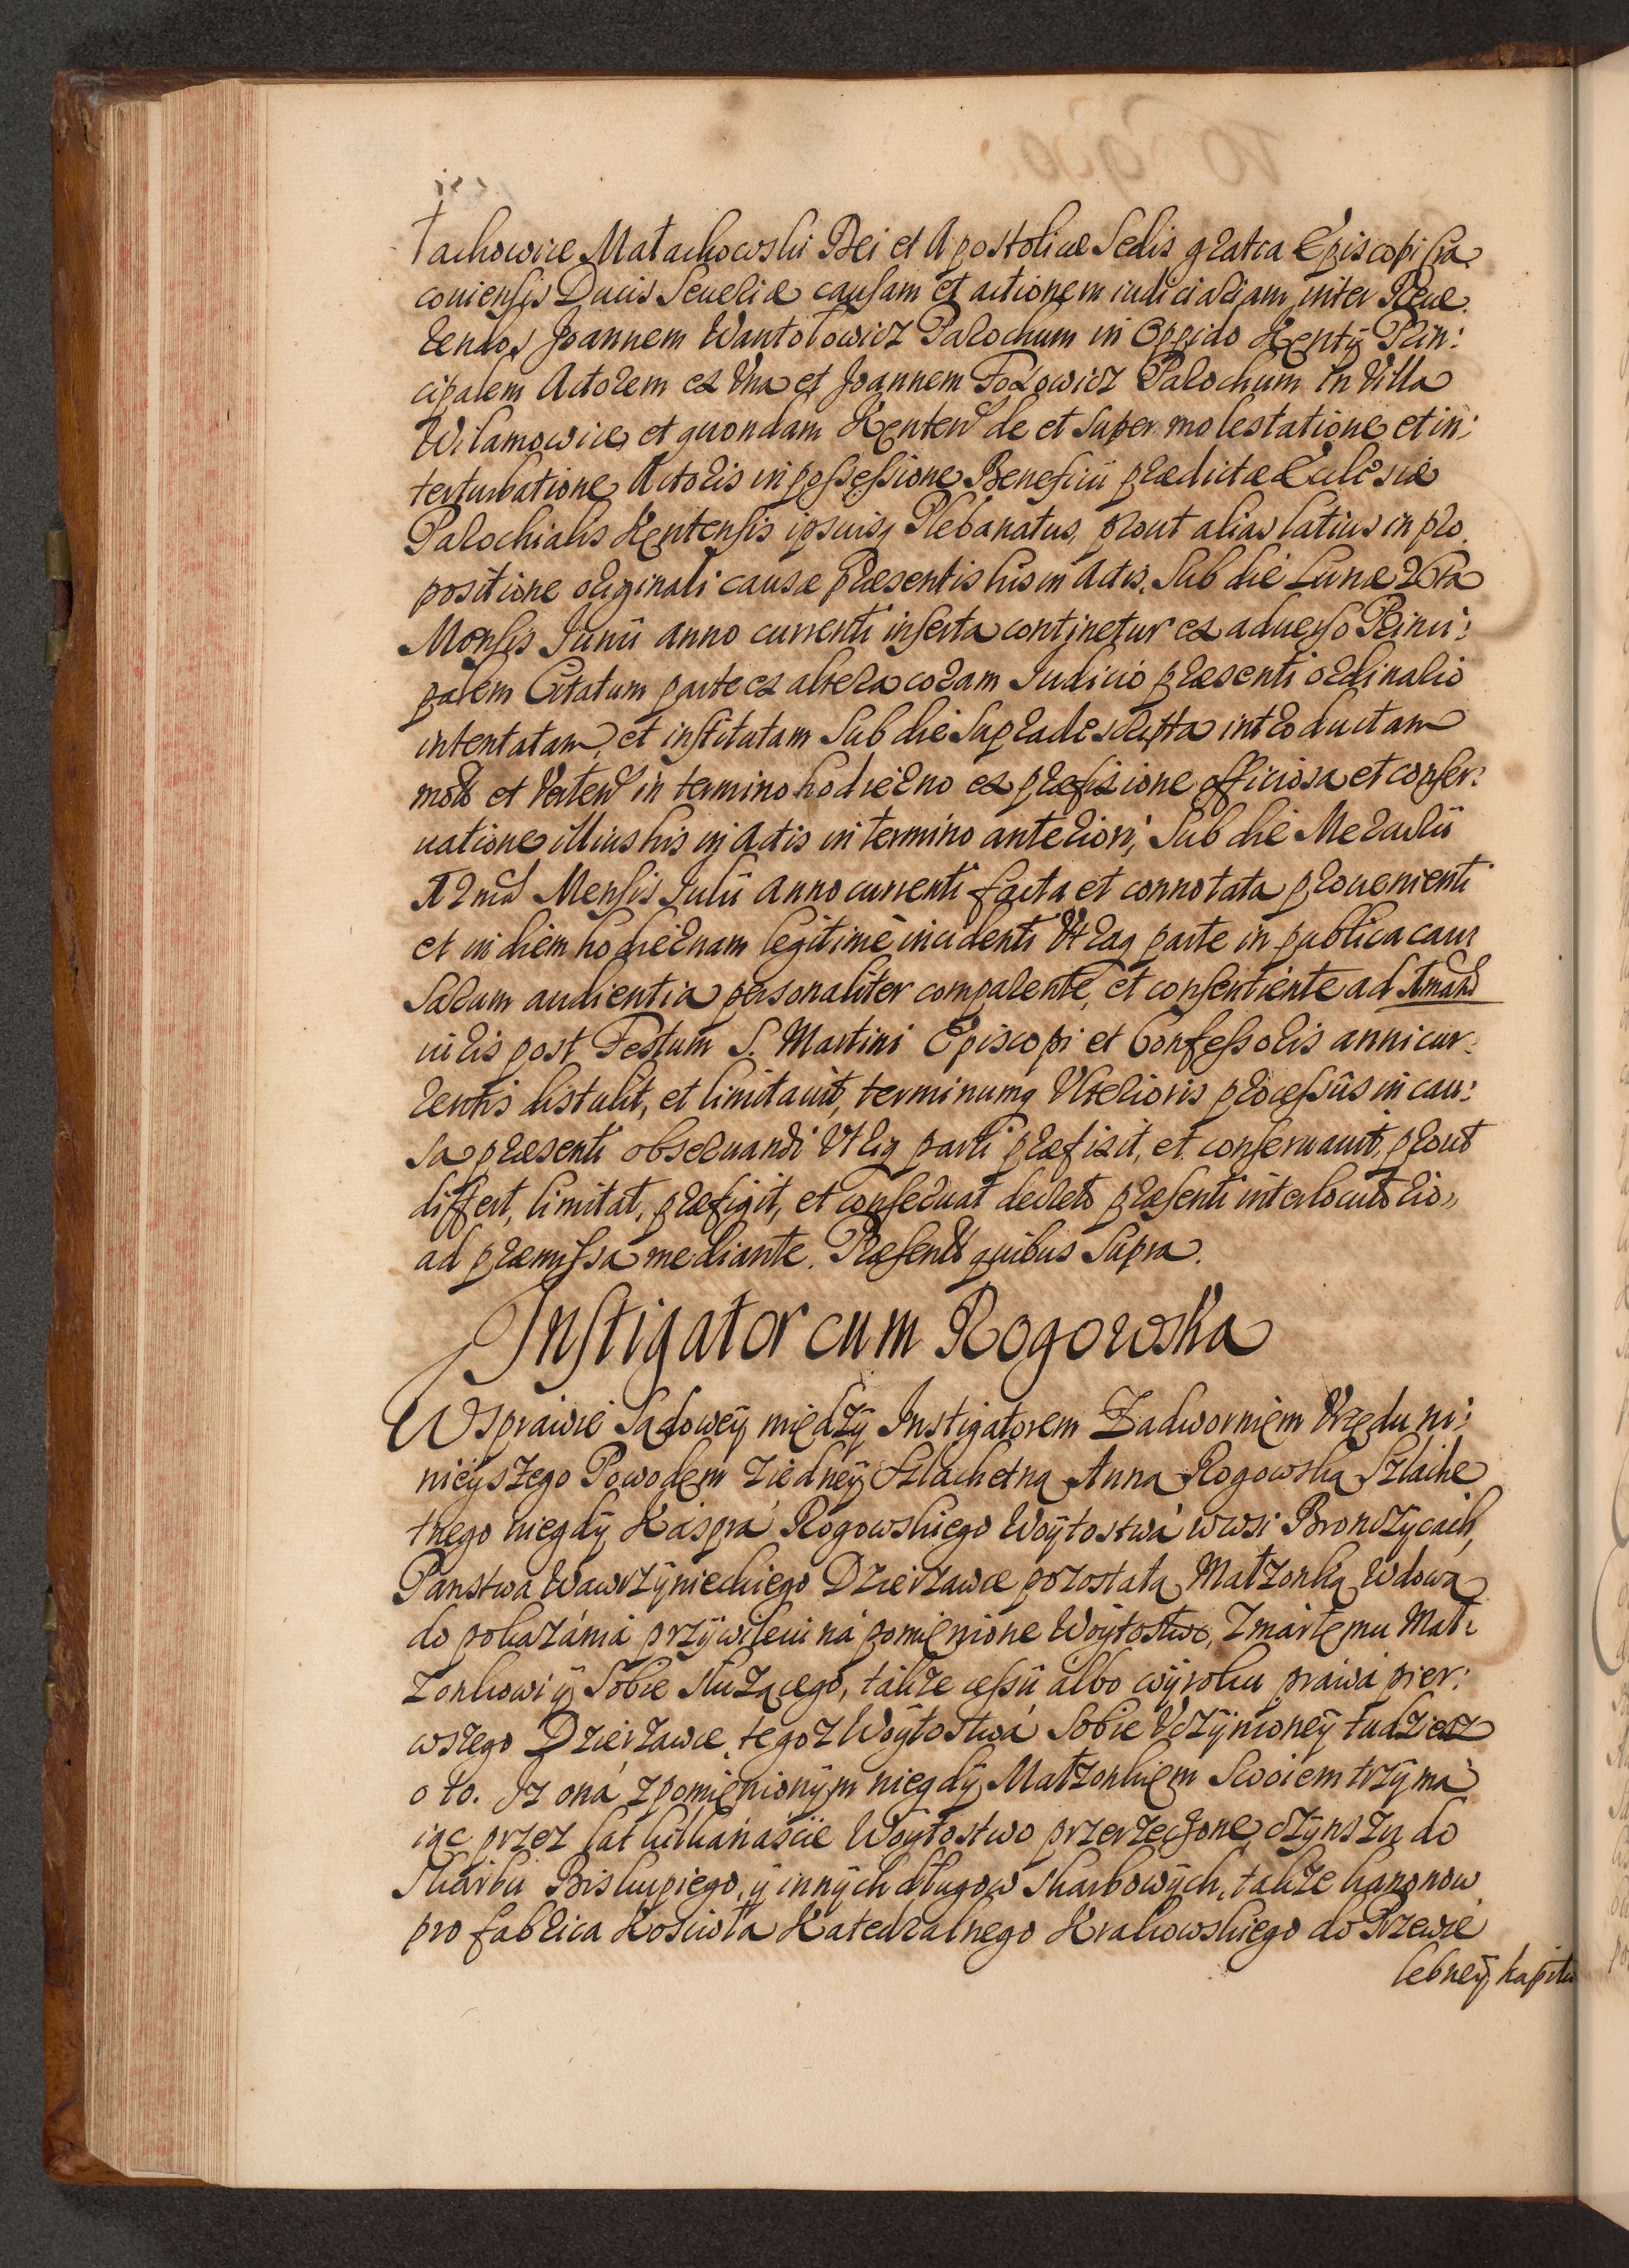 tachowice Małachowski Dei et Apostolicæ Sedis gratia Episcopi Cra
couiensis Ducis Seueriæ causam et actionem iudiciariam inter Reue.
rendos Joannem Wantołowicz Parochum in Oppido Kenty Prin:
cipalem Actorem ex Vna et Joannem Foxowicz Parochum in Villa
Wilamowice et quondam Kenten de et super molestatione et in:
terturbatione Actoris in possessione Beneficii prædictæ Ecclesiæ
Parochialis Kentensis ipsiusq Plebanatus, prout alias latius in pro.
positione originali causæ præsentis his in Actis. Sub die Lunæ 26ta
Mensis Junii anno currenti inserta continetur ex aduerso Princi:
palem Citatum parte ex altera coram Judicio præsenti ordinario
intentatam, et institutam Sub die supradescripta introductam
modo et Verten in termino hodierno ex præfixione officiosa et conser:
uatione illius his in Actis in termino anteriori, Sub die Mercurii
12nd Mensis Julii anno currenti facta et connotata prouenienti
et in diem hodiernam legitimè incidenti Vtraq parte in publica cau:
sarum audientia personaliter comparente, et consentiente ad
uiris post Festum S. Martini Episcopi et Confessoris anni cur:
rentis distulit, et limitauit, terminumq Vlterioris processûs in cau:
sa præsenti obseruandi Vtriq parti præfixit, et conseruauit, prout
differt, limitat, præfigit, et conseruat decreto præsenti interlocutorio,,
ad præmissa mediante. Præsentib quibus Supra.
Instigator cum Rogowska
W sprawie Sądowey między Instigatorem Zadwornięm Vrzędu ni:
nieyszego Powodem z iedney Szlachetną Anną Rogowską Szlache
tnego niegdy Káspra Rogowskiego Woytostwá w wsi Bronczycach,
Panstwa Wawrzynieckiego Dzierzawce pozostałą Małzonką Wdową
do pokazánia przywileiu ná pomięnione Woytostwo, Zmarłemu Mał:
zonkowi y Sobie służącego, tákze cessii álbo wyroku práwa pier:
wszego Dzierzawce tegoz Woytostwá Sobie Vczynioney tudziesz
o to. Jz oná z pomięnionym niegdy Małzonkięm Swoiem trzyma
iąc przez lat kilkánascie Woytostwo przerzeczone, czynszu do
Skárbu Biskupiego, y innych długow skarbowych, takze kanonow
pro fabrica Koscioła Katedralnego Krakowskiego do Przewie
lebney kapitu